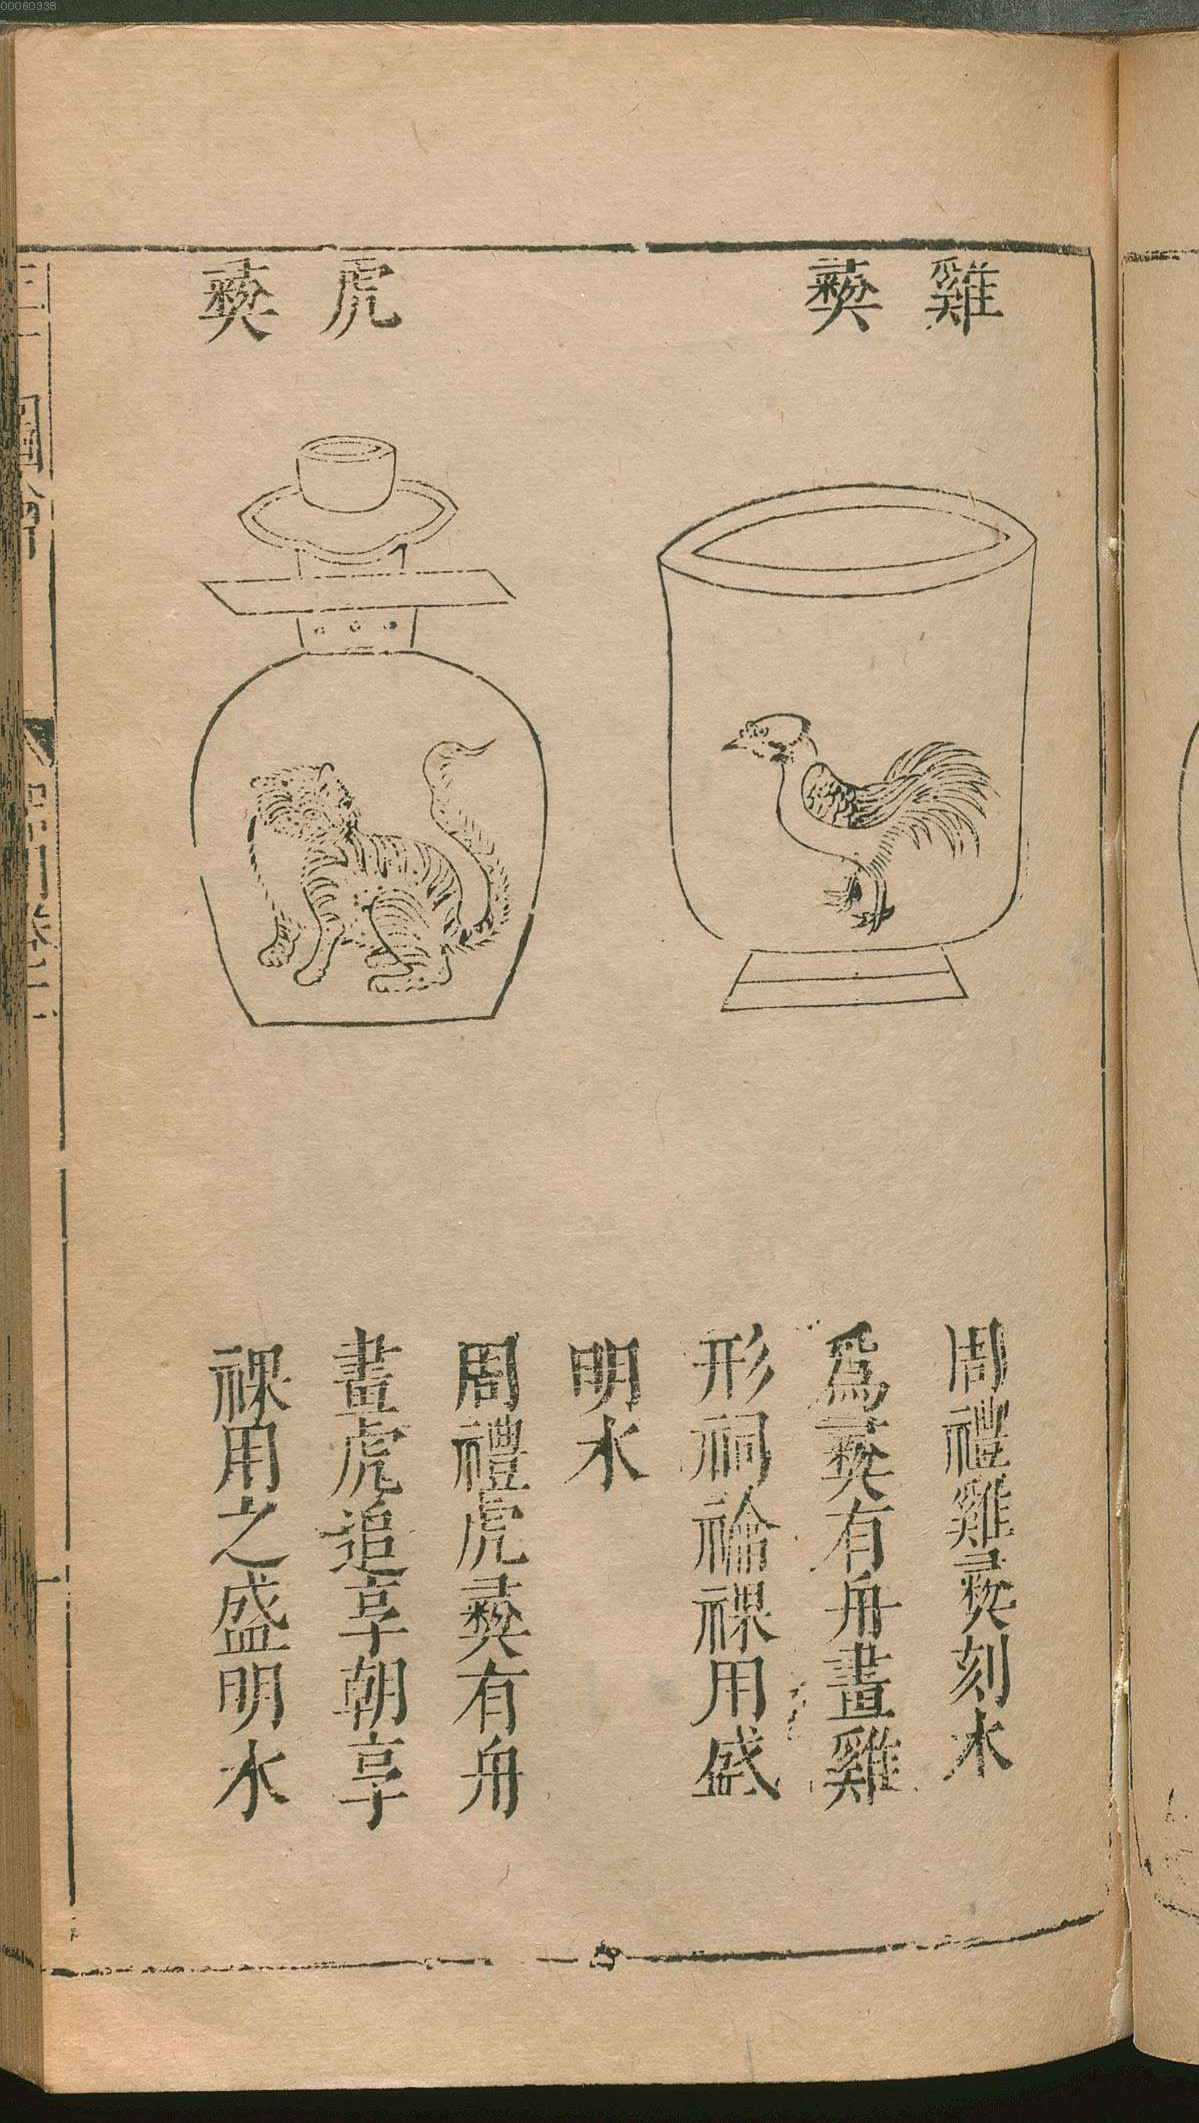 00060338
雞
彝
周禮雞彝刻木
爲彝有舟畫雞
形祠禴祼用盛
明水
虎
彝
周禮虎彝有舟
畫虎追享朝享
祼用之盛明水